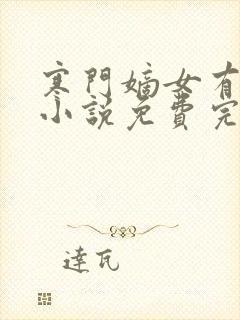 寒門嫡女有
小說免費完
達瓦